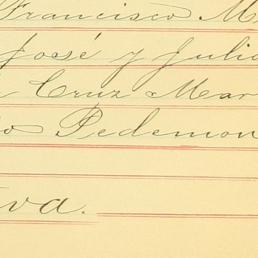 Francisco M
José y Julia
Cruz Mar
o Pedemon
va.